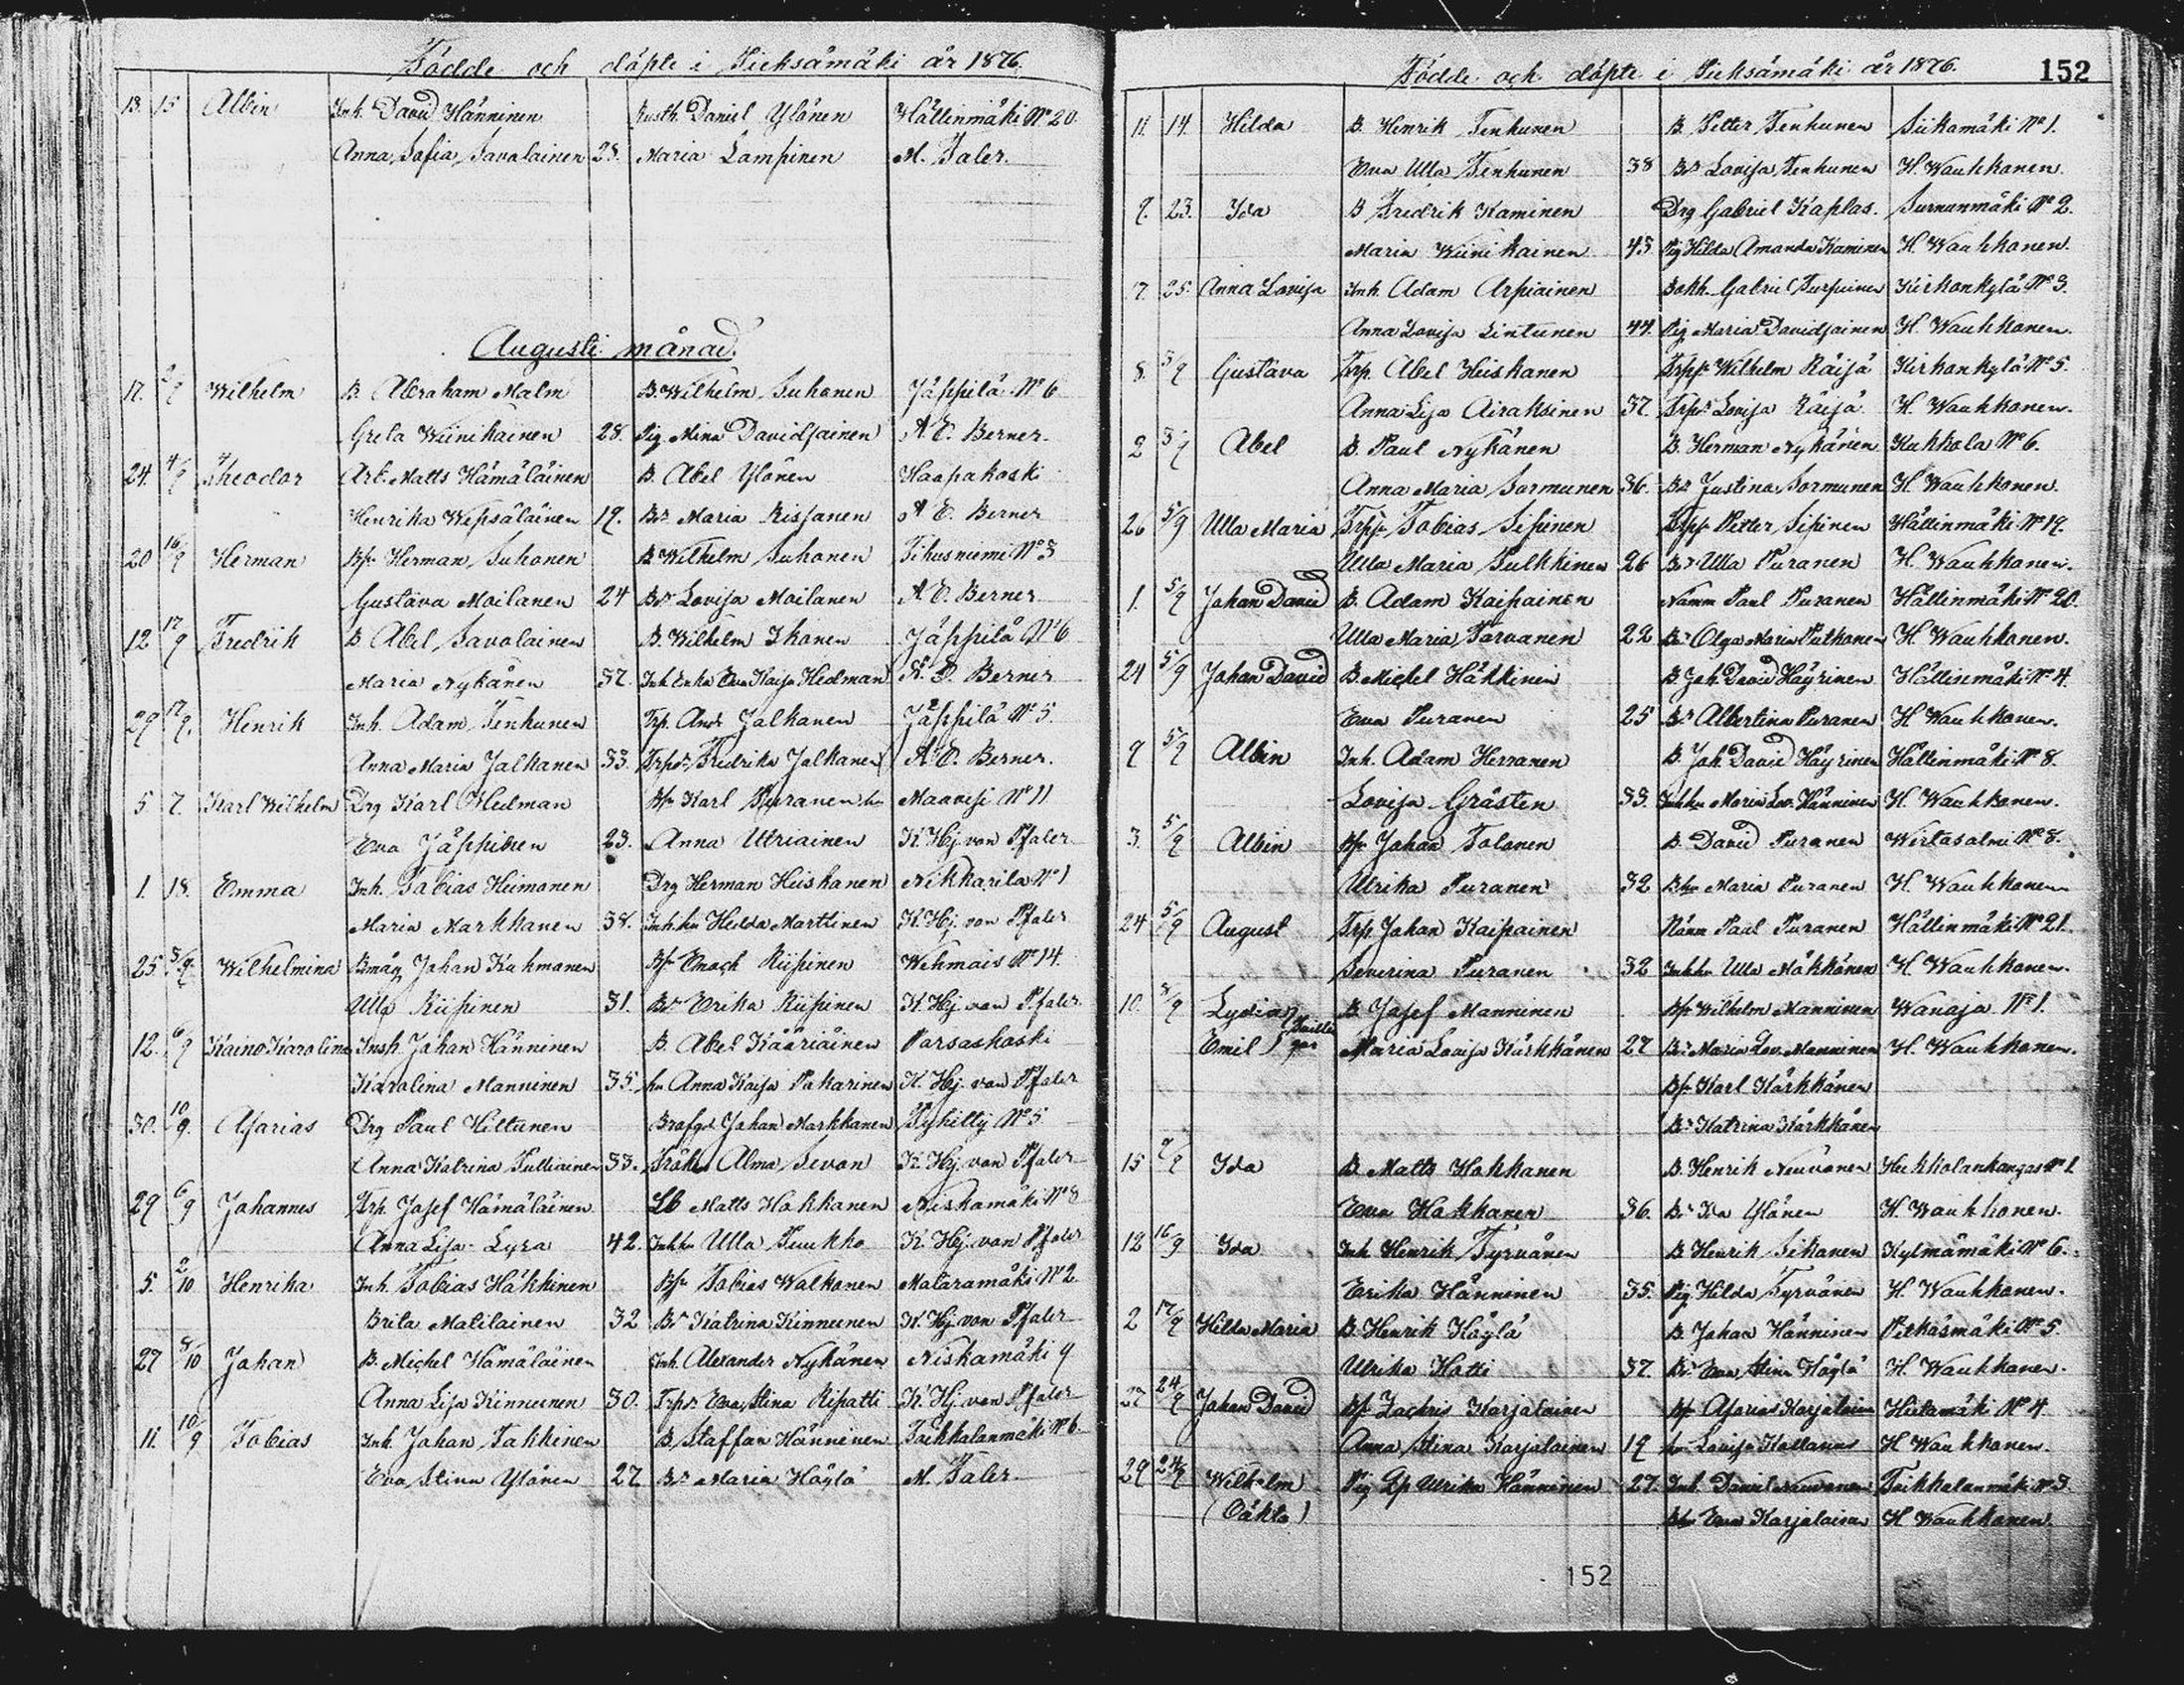 Födde och döpte i Pieksämäki år 1876
13. 15 Albin Inh. David Hänninen Rusth. Daniel Ylönen Hällinmäki No 20.
Anna Sofia Savolainen 28. Maria Lampinen M. Taler.
Augusti månad.
17. 2/9 Wilhelm B. Abraham Malm B. Wilhelm Suhonen Jäppilä No 6
Greta Wiinikainen 28. Pig. Mina Davidsainen A. E. Berner.
24. 4/9 Theodor Arb. Matts Hämäläinen B. Abel Ylönen Haapakoski
Henrika Wepsäläinen 19. Bdr Maria Rissanen A. E. Berner
20 16/9 Herman Bfr Herman Suhonen B. Wilhelm Suhonen Tihusniemi No 3
Gustava Moilanen 24 Bdr Lovisa Moilanen A. E. Berner
12 17/9 Fredrik B. Abel Savolainen B. Wilhelm Ihonen Jäppilä No 6
Maria Nykänen 37. Inh Enka Eva Kaisa Hedman A. E. Berner
29 17/9. Henrik Inh. Adam Tenhunen Trp. And. Jalkanen Jäppilä No 5.
Anna Maria Jalkanen 33. Trpdr Fredrika Jalkanen A. E. Berner.
5 7. Karl Wilhelm Drg Karl Hedman Bfr Karl Puranen hu Maavesi No 11
Eva Jäppinen 23. Anna Utriainen K. Hj. von Pfaler
1. 13. Emma Inh. Tobias Heimonen Drg Herman Heiskanen Nikkarila No 1
Maria Markkanen 38. Inh. hu Hedda Marttinen K. Hj. von Pfaler
25 3/9. Wilhelmina Bmåg Johan Kuhmonen Bfr Enoch Riipinen Wehmais No 14.
Ulla Riipinen 31. Bdr Erika Riipinen K. Hj. von Pfaler
12. 6/9 Kaino Karolina Insp. Johan Hänninen B. Abel Kääriäinen Parsaskoski
Karolina Manninen 35. hu Anna Kaisa Pakarinen K. Hj. von Pfaler
30. 10/9. Asarias Drg Paul Hiltunen Johan Markkanen Pyhitty No 5
Anna Katrina Tulliainen 33. Frökn Alma Sevon K. Hj. von Pfaler
29 6/9 Johannes Trp. Josef Hämäläinen Lb Matts Hokkanen Niskamäki No 8
Anna Lisa Lyra 42. Inh.hu Ulla Puukko K. Hj. von Pfaler
5. 2/10 Henrika Inh. Tobias Häkkinen Bfr Tobias Walkonen Mataramäki No 2
Brita Matilainen 32 Bdr Katrina Kinnunen K. Hj. von Pfaler
27 8/10 Johan B. Michel Hämäläinen Inh. Alexander Nykänen Niskamäki 9
Anna Lisa Kinnunen 30. Trpdr Eva Stina Ripatti K. Hj. von Pfaler
11. 10/9 Tobias Inh. Johan Takkinen B. Staffan Hänninen Toikkalanmäki No 6.
Eva Stina Ylönen 27 Bdr Maria Höglä M. Taler
Födde och döpte i Pieksämäki år 1876. 152
11. 14. Hilda B. Henrik Tenhunen B. Petter Tenhunen Siikamäki No 1.
Eva Ulla Tenhunen 38 Bdr Lovisa Tenhunen H. Wauhkonen.
9. 23. Ida B. Fredrik Kaminen Drg Gabriel Kaplas. Surnunmäki No 2.
Maria Wiinikainen 43 Pig Hilda Amanda Kaminen H. Wauhkonen.
7. 25. Anna Lovisa Inh. Adam Arpiainen Bokh. Gabriel Turpeinen Kirkonkylä No 3.
Anna Lovisa Lintunen 44. Pig. Maria Davidsainen H. Wauhkonen.
8. 3/9 Gustava Trp. Abel Heiskanen Trpfr Wilhelm Räisä Kirkonkylä No 5.
Anna Lisa Airaksinen 37. Trpdr Lovisa Räisä H. Wauhkonen.
2 3/9 Abel B. Paul Nykänen B. Herman Nykänen Kukkola No 6.
Anna Maria Sormunen 36. Bdr Justina Sormunen H. Wauhkonen.
26 5/9 Ulla Maria Trpfr Tobias Sipinen Trpfr Petter Sipinen Hällinmäki No 19.
Ulla Maria Pulkkinen 26 Bdr Ulla Puranen H. Wauhkonen.
1. 5/9 Johan David B. Adam Kaipainen Nämm Paul Puranen Hällinmäki No 20.
Ulla Maria Tarvanen 22 Bdr Olga Maria Puthonen H. Wauhkonen.
24 5/9 Johan David B. Michel Häkkinen B. Joh. David Häyrinen Hällinmäki No 4.
Eva Puranen 25 Bdr Albertina Puranen H. Wauhkonen.
9 5/9 Albin Inh. Adam Herranen B. Joh. David Häyrinen Hällinmäki No 8.
Lovisa Gråsten 33. Inhhu Maria Lov. Hänninen H. Wauhkonen.
3. 5/9 Albin Bfr Johan Tolonen B. David Puranen Wirtasalmi No 8.
Ulrika Puranen 32 Bhu Maria Puranen H. Wauhkonen
24 5/9 August Trp. Johan Kaipainen Nämn Paul Puranen Hällinmäki No 21.
Severina Puranen 32 Inhhu Ulla Mökkönen H. Wauhkonen.
10. 8/9 Lydia } B. Josef Manninen Bfr Wilhelm Manninen Wanaja No 1.
Emil } Maria Lovisa Kärkkänen 27 Bdr Maria Lov. Manninen H. Wauhkonen.
Bfr Karl Kärkkänen
Bdr Katrina Kärkkänen
15 9/9 Ida B. Matts Hokkanen B. Henrik Neuvonen Heikkolankangas No 1
Eva Hokkanen 36. Bdr Ida Ylönen H. Wauhkonen.
12 16/9 Ida Inh. Henrik Tyrvänen B. Henrik Sikanen Kylmämäki No 6.
Erika Hänninen 35. Pig. Hilda Tyrvänen H. Wauhkonen.
2 17/9 Hilda Maria B. Henrik Höglä B. Johan Hänninen Petkäsmäki No 5.
Ulrika Hotti 37. Bdr Eva Stina Höglä H. Wauhkonen.
27 24/9 Johan David Bfr Zachris Karjalainen Bfr Asarias Karjalainen Hietamäki No 4.
Anna Stina Karjalainen 19 hu Lovisa H. Wauhkonen.
29 24/9 Wilhelm Pig. Lp Ulrika Hänninen 27. Inh. Daniel Neuvonen Toikkalanmäki No 3
(Oäkta) Bhu Eva Karjalainen H Wauhkonen.
152